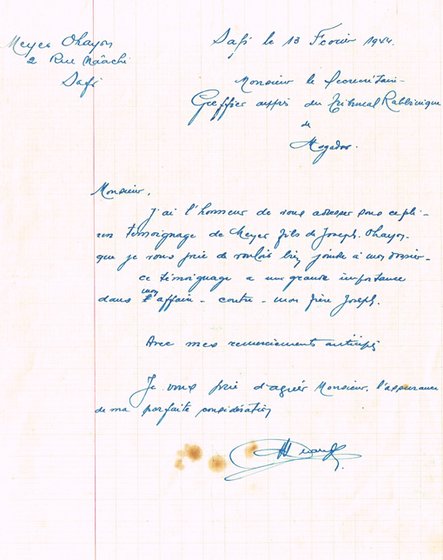 Meyer Ohayon
2 Rue
Safi
Safi le 13 Fevrier 1944.
Monsieur le Secretaire-
Greffier auprès du Tribunal Rabbinique
de
Mogador.
Monsieur,
J'ai l'honneur de vous adresser sous ce pli -
un témoignage de Meyer fils de Joseph Ohayon
que je vous prie de vouloir bien joindre à mon dossier -
ce témoignage a une grande importance
dans l'affaire - contre - mon frère Joseph.
Avec mes remerciements anticipés
Je vous prie d'agréer Monsieur, l'assurance
de ma parfaite considération